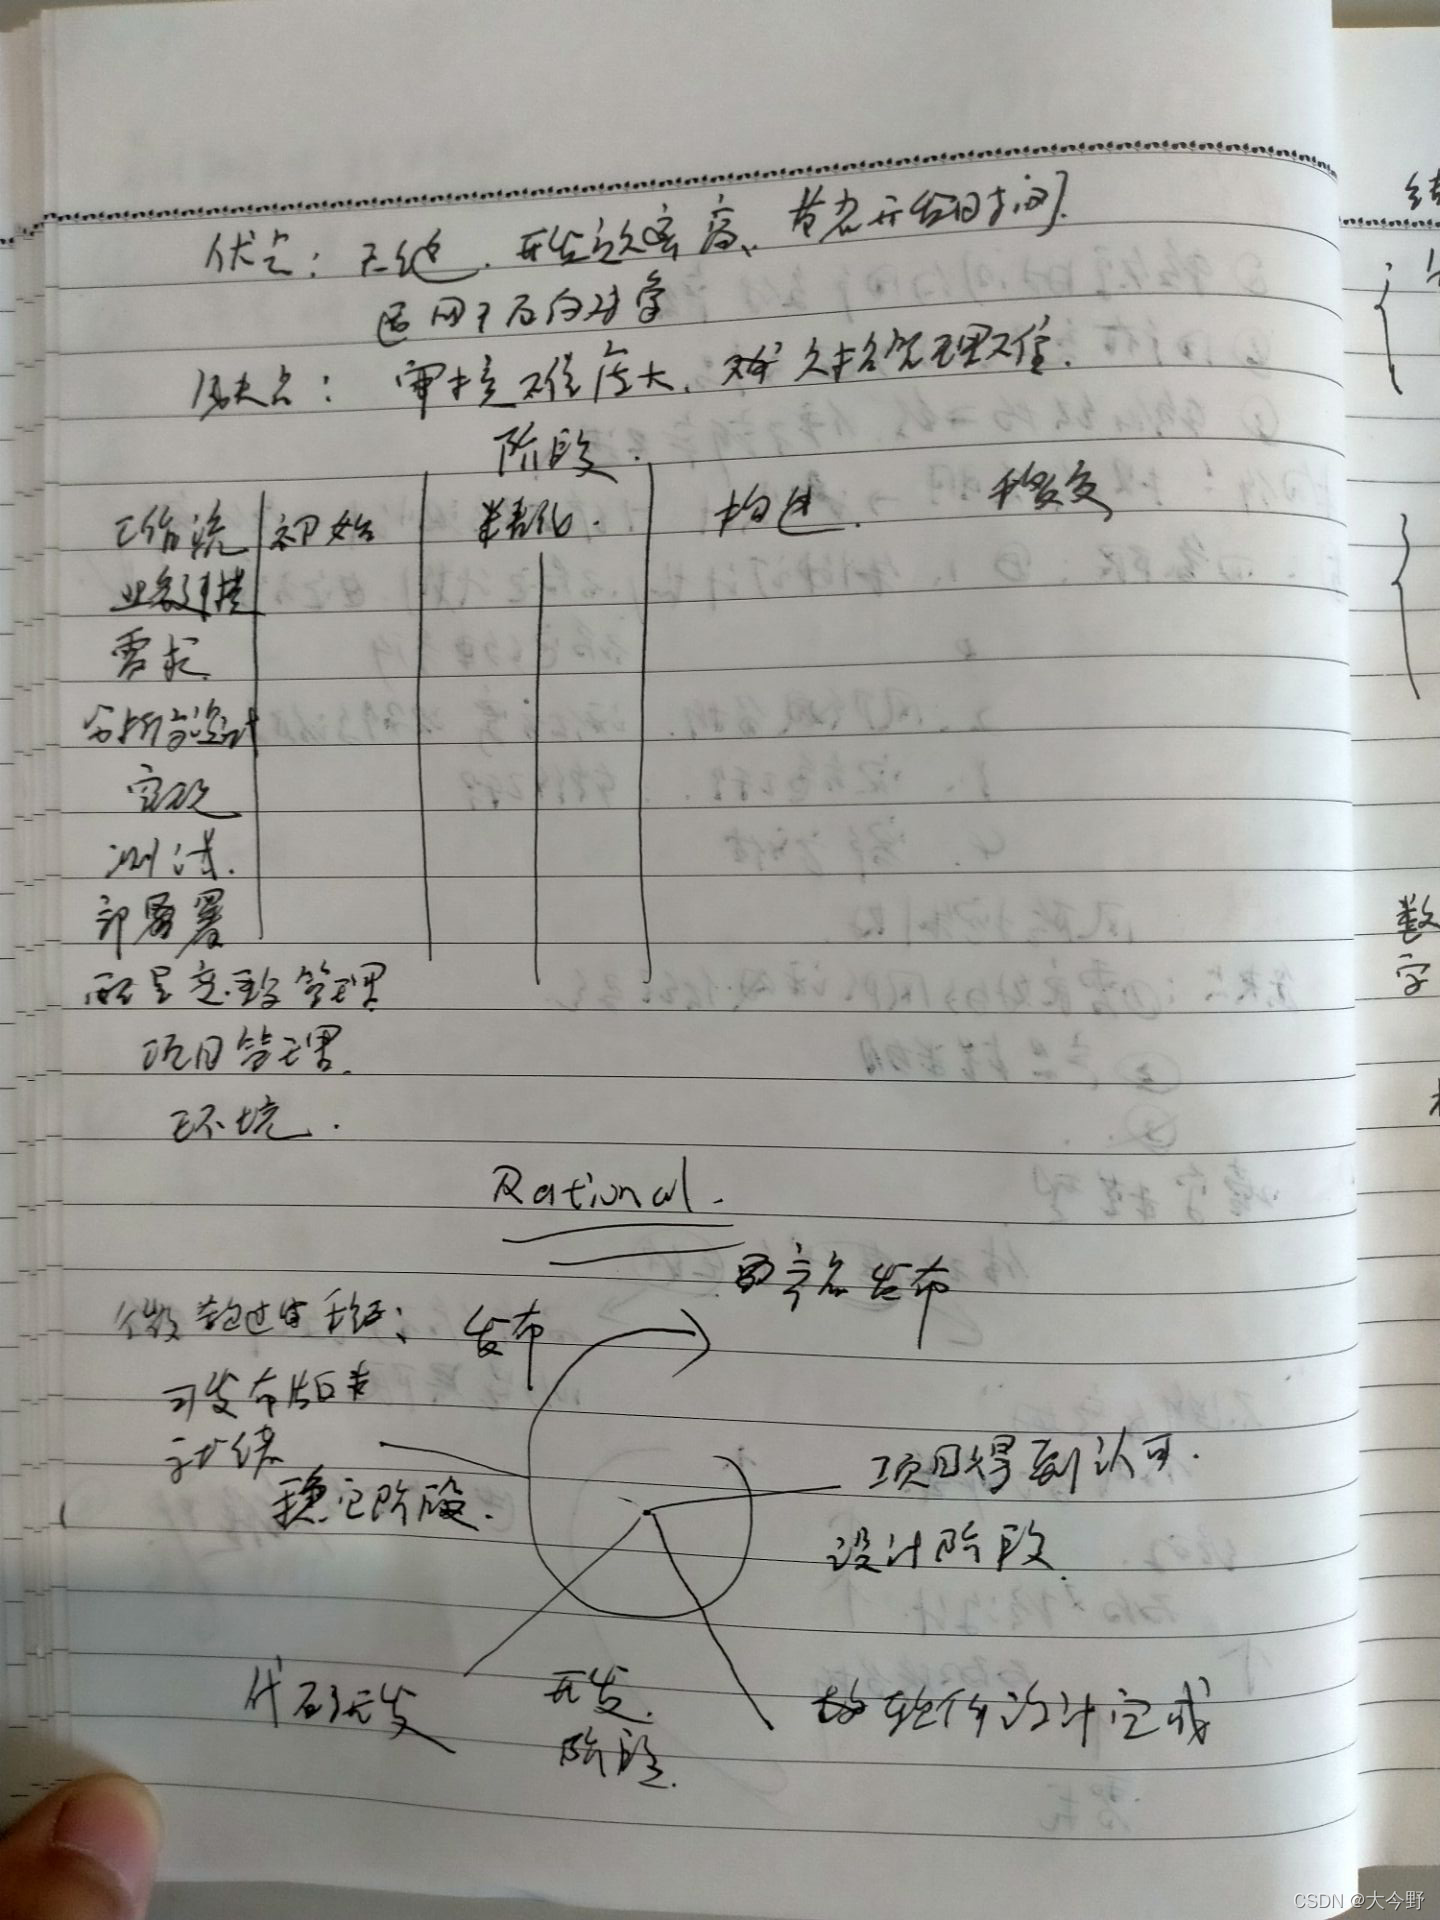 优点: 无缝. 开发效率高、节省开发时间.
适用于面向对象
缺点: 审核难度大. 文档管理难.
阶段.
工作流 初始 精化. 构建. 移交
业务建模
需求.
分析与设计
实现
测试.
部署
配置变更管理
项目管理.
环境.
Rational.
发布
微软过程:
发布
可发布版本
就绪
稳定阶段.
项目得到认可.
设计阶段.
代码开发
开发.
阶段.
软件设计完成
数
字
CSDN @大今野